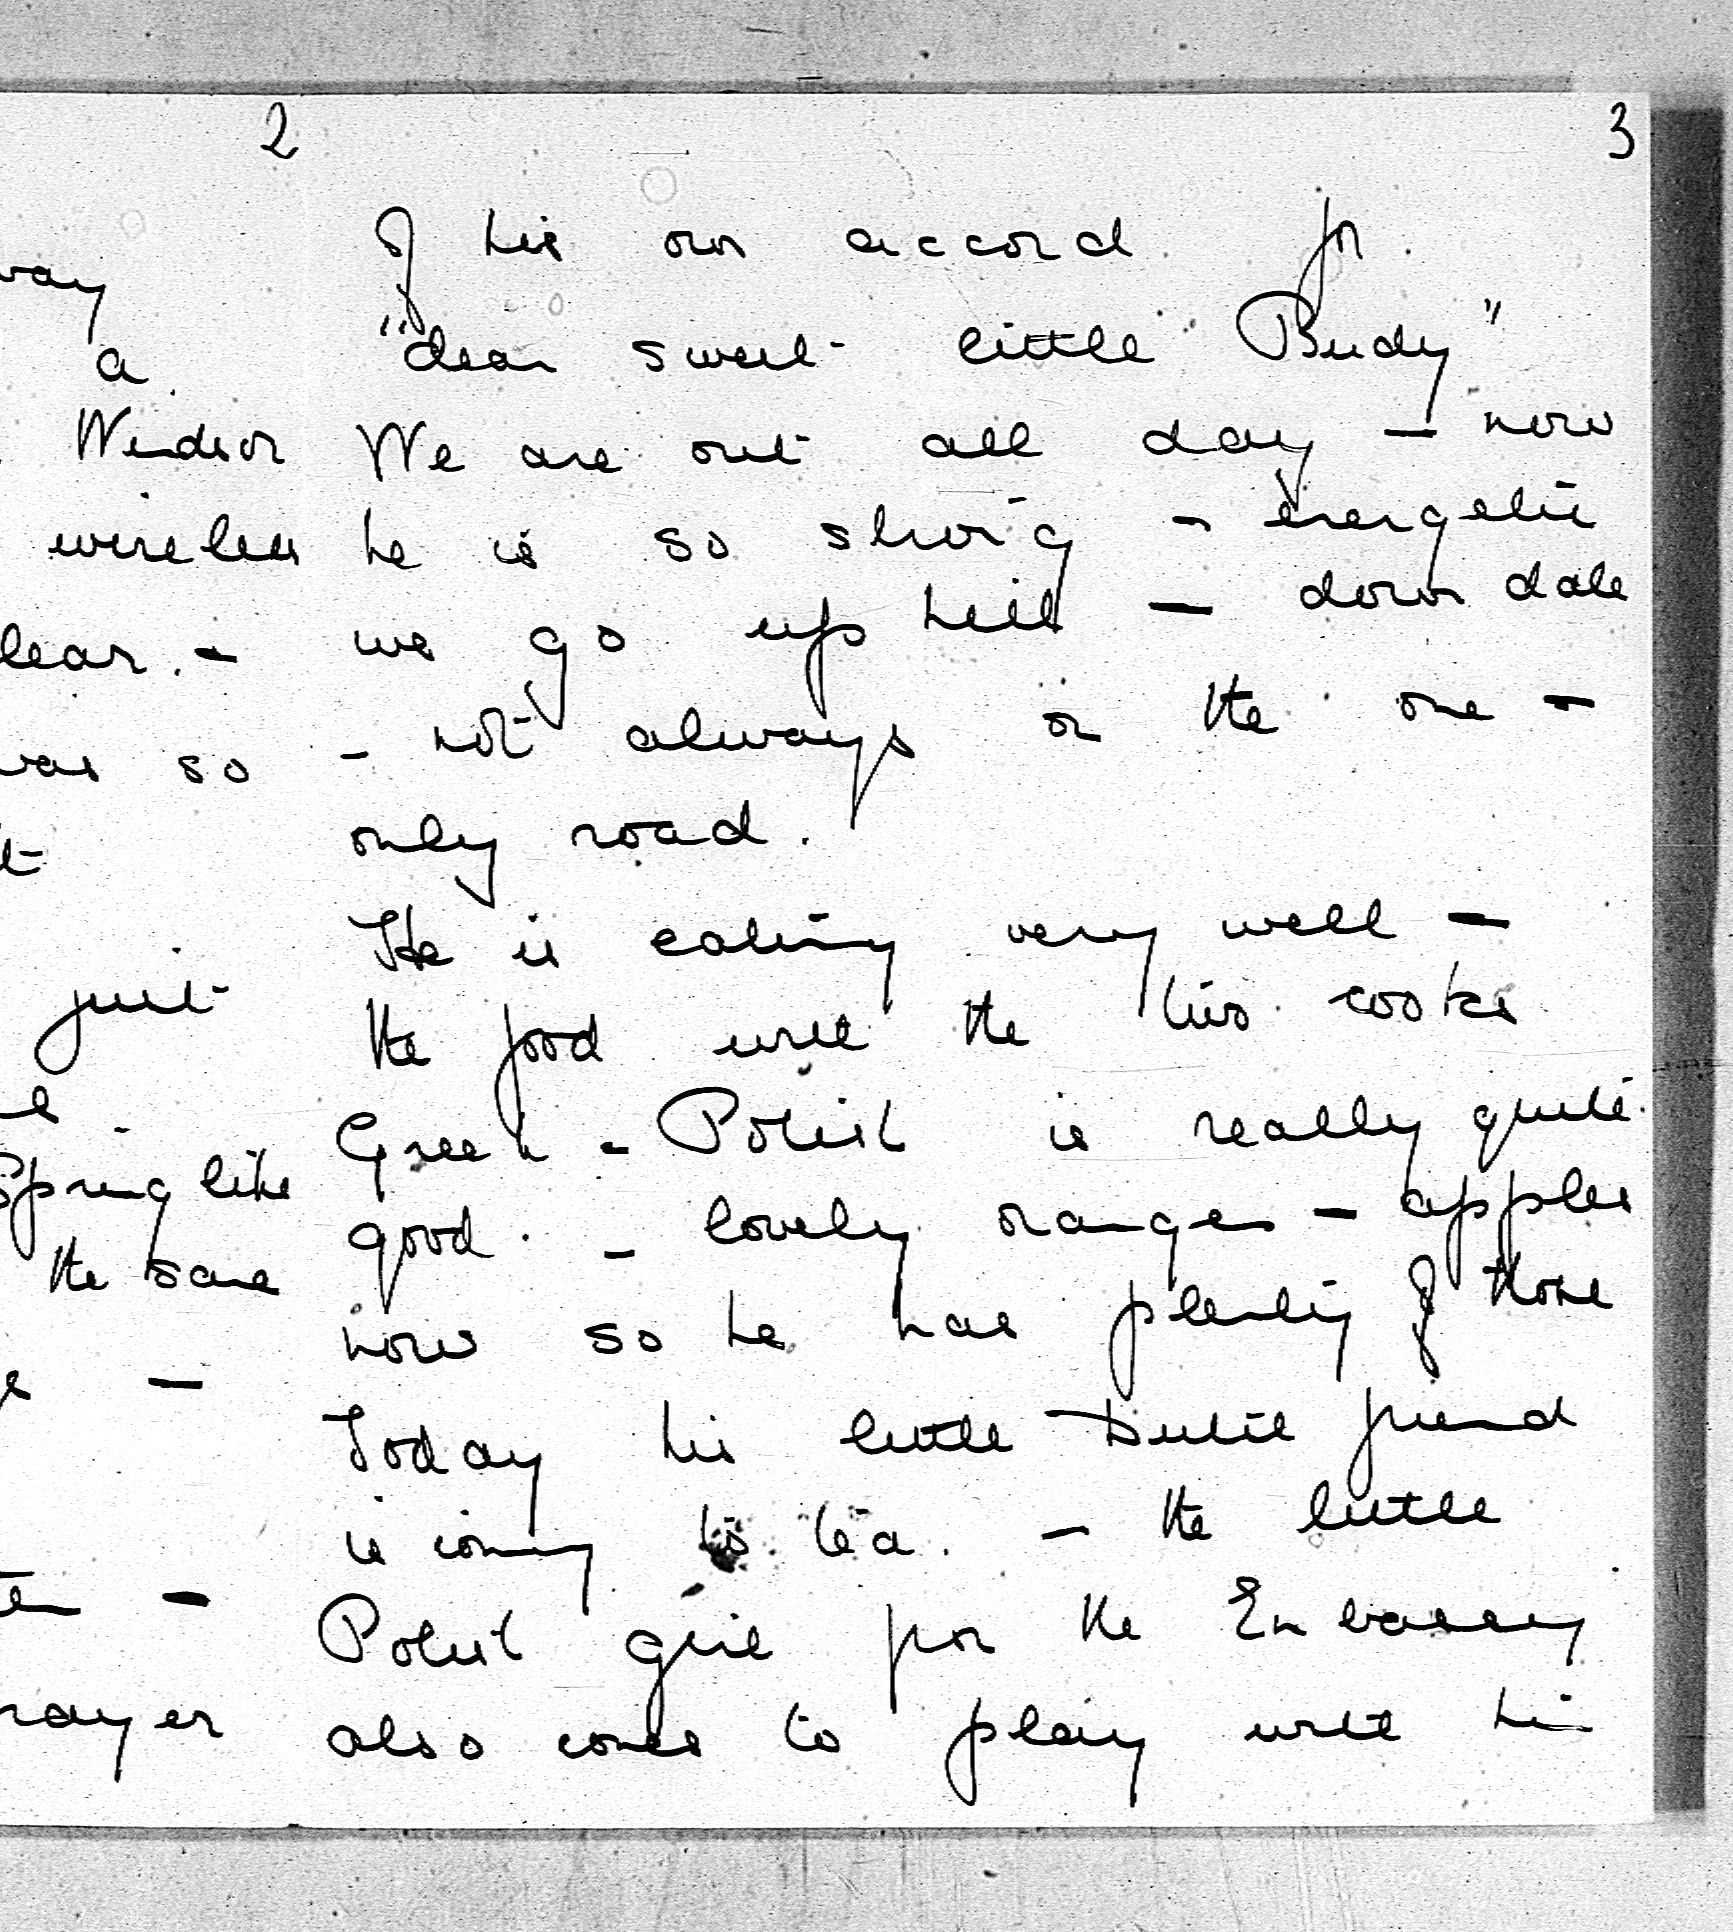 2
way
a
Windsor
wireless
lear. -
was so
just
Spring like
the same
-
-
rayer
3
of his own accord for
"dear sweet little Budy"
We are out all day - now
he is so strong - energetic
we go up hill - down dale
- not always on the one -
only road.
He is eating very well -
the food with the two cooks
Greek - Polish is really quite
good. - lovely oranges - apples
now so he has plenty of those
Today his little Dutch friend
is coming to tea. - the little
Polish girl from the Embassy
also comes to play with him